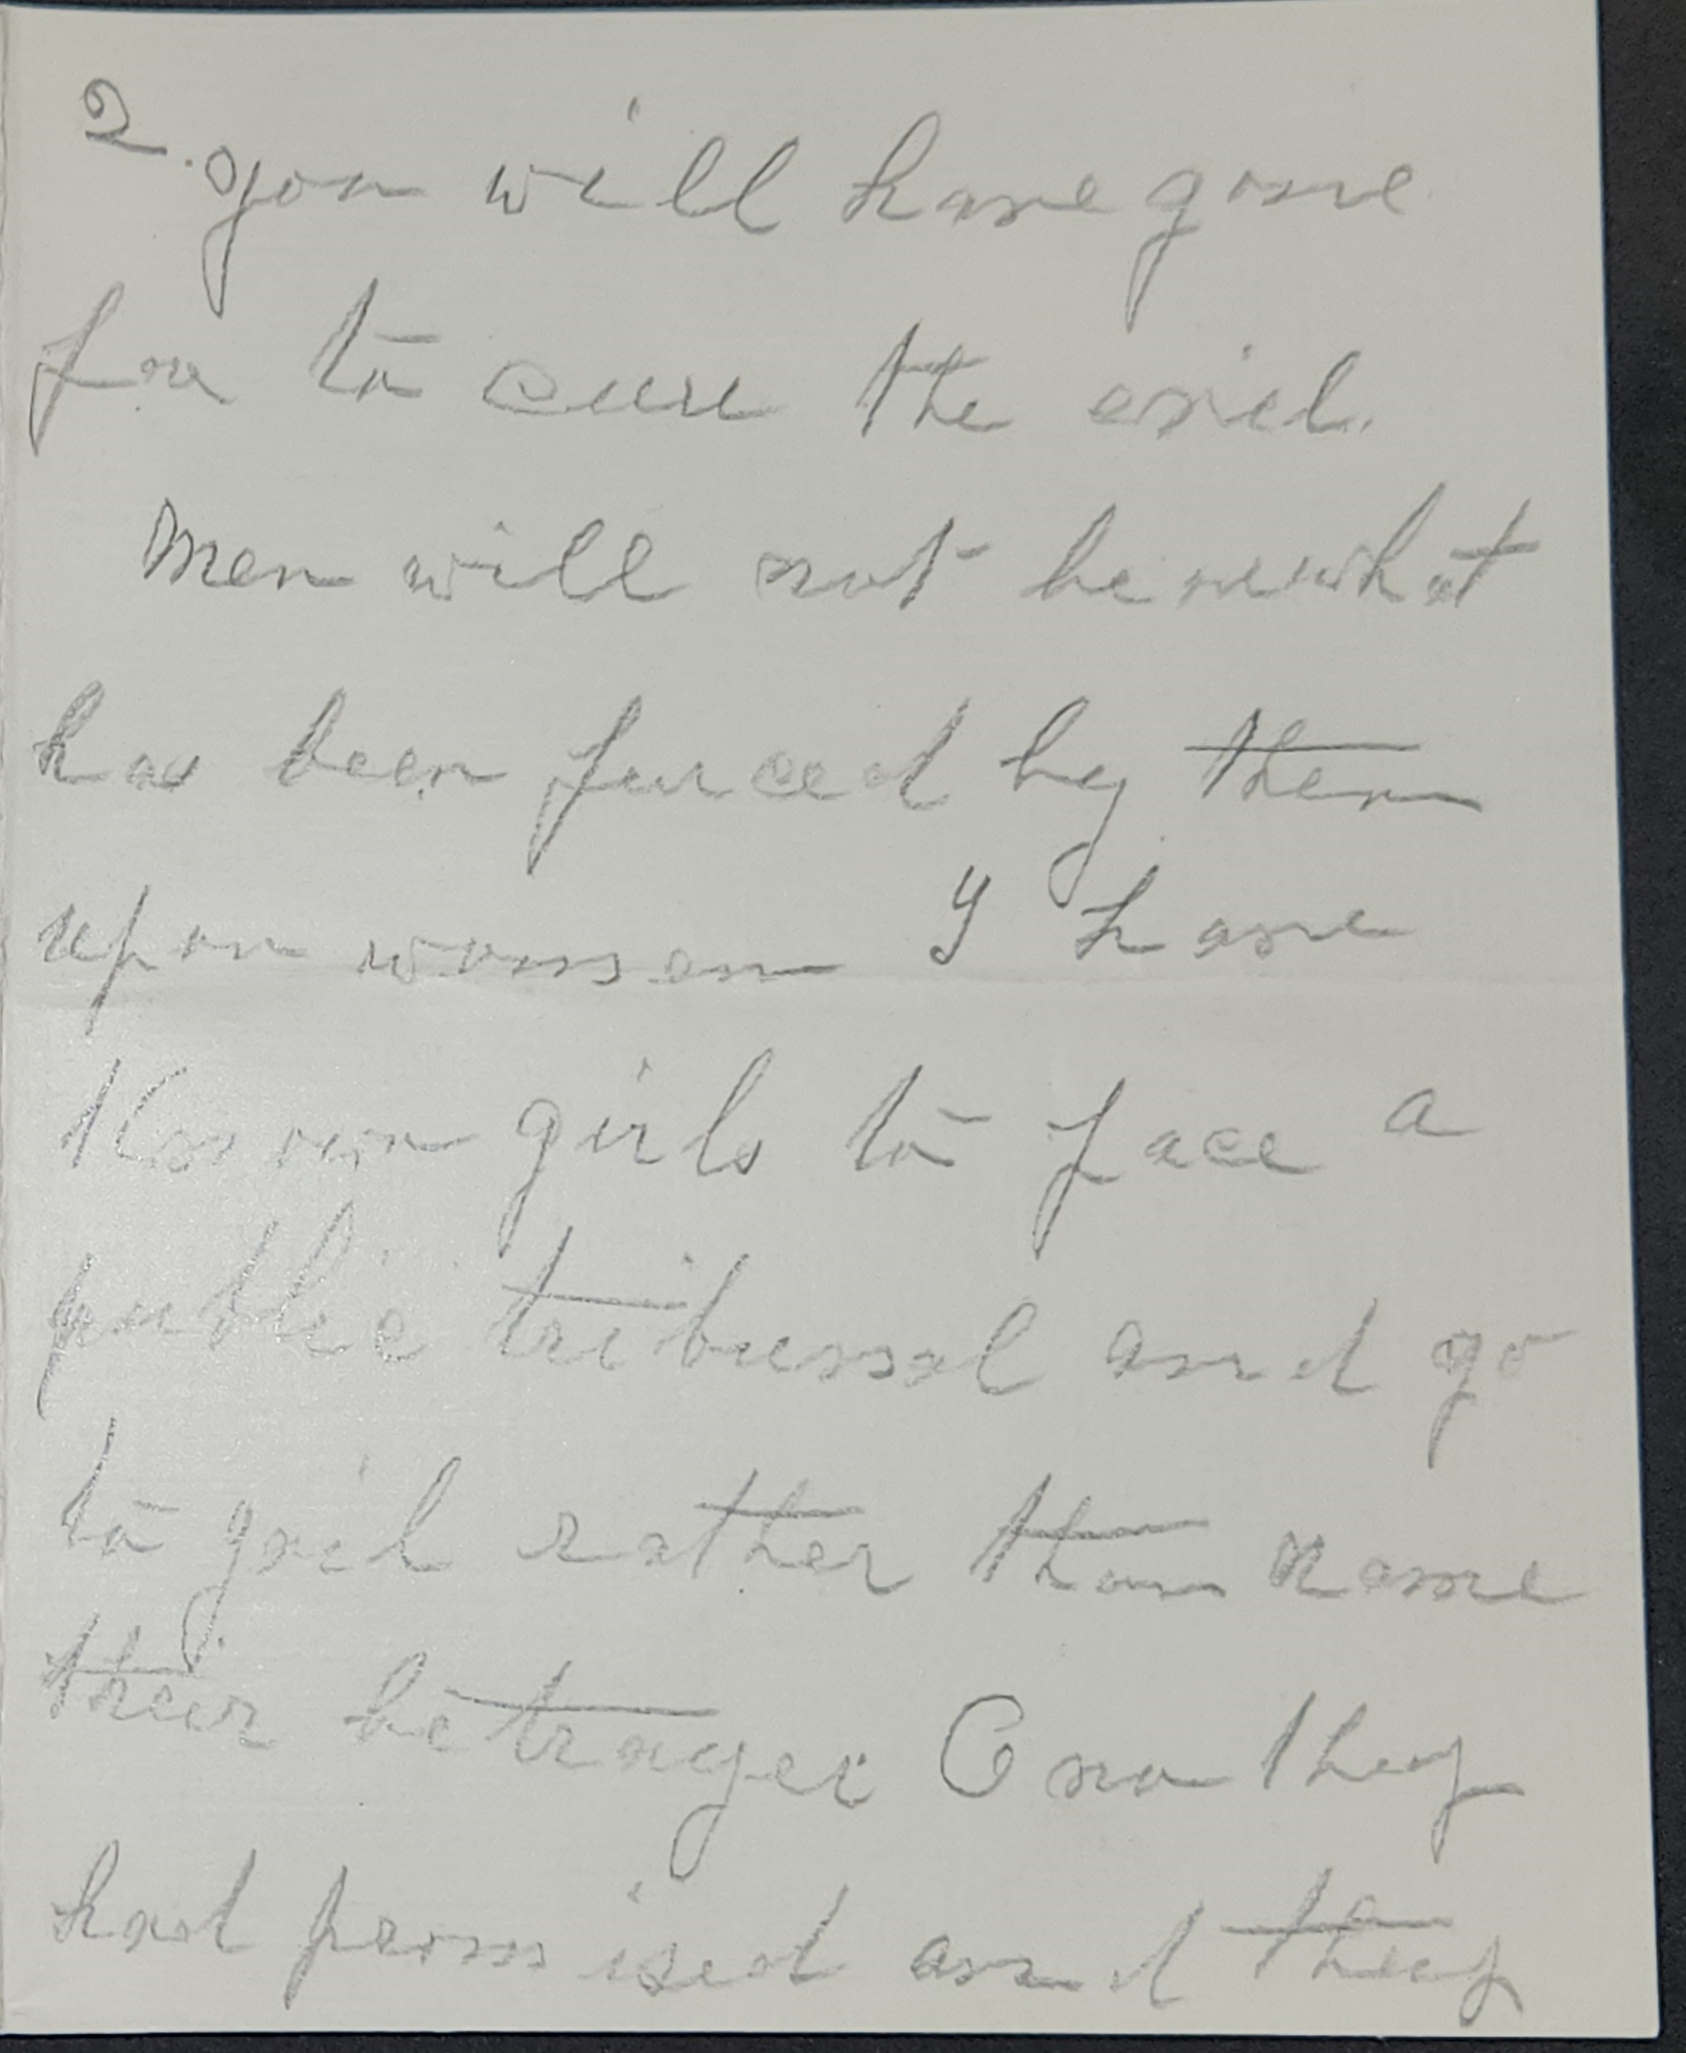 2. you will have gone
far to cure the evil.
Men will not bear what
has been forced by them
upon women I have
Known girls to face a
public tribunal and go
to jail rather than name
their betrayer O no they
had promised and they